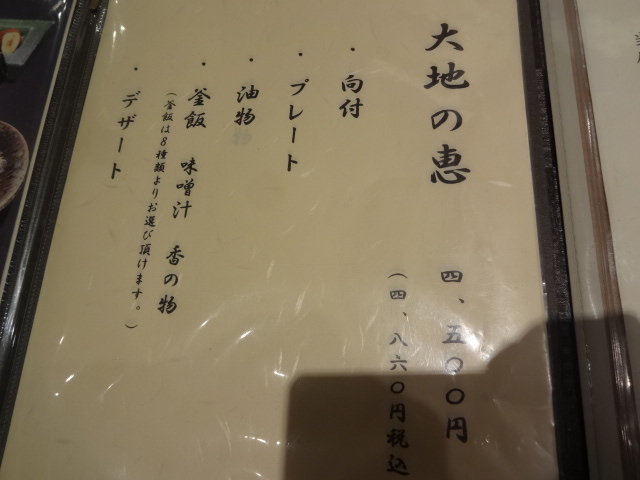 大地の恵
四、五〇〇円
(四、八六〇円税込
・向付
・プレート
・油物
・釜飯　味噌汁　香の物
(釜飯は8種類よりお選び頂けます。)
・デザート